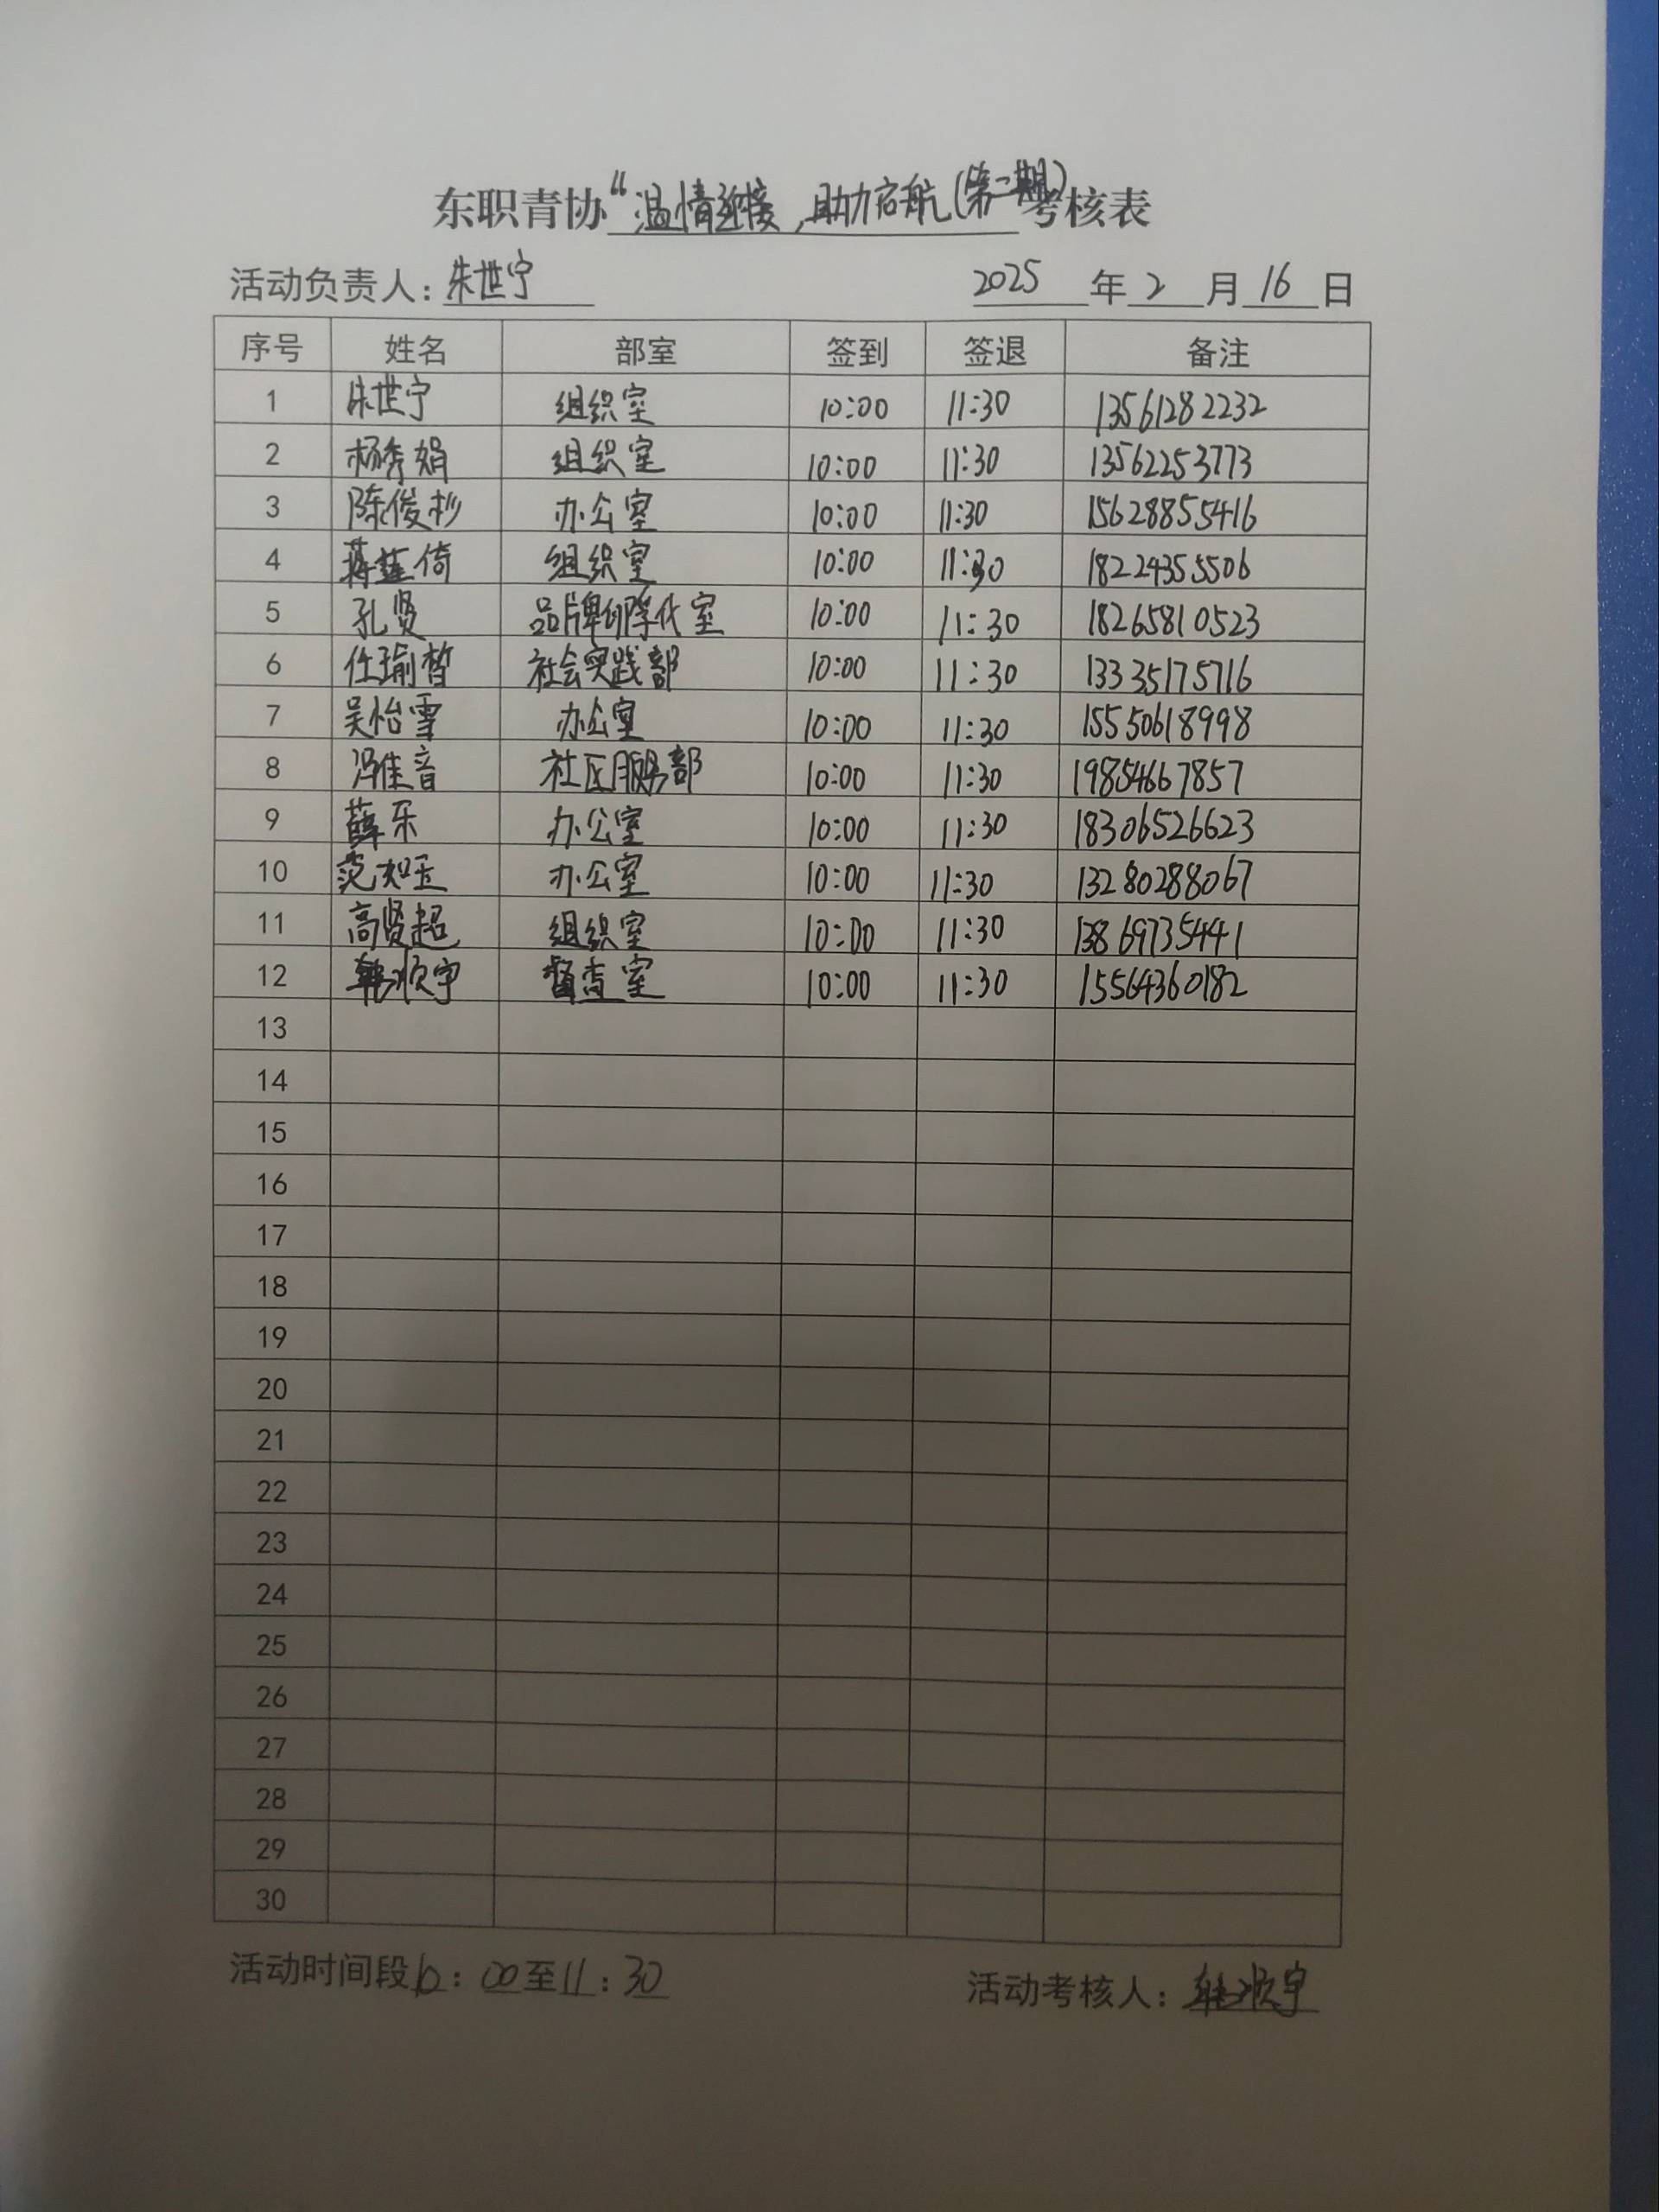 东职青协“温情迎接，助力启航(第二期)考核表
活动负责人：朱世宁 2025 年 2 月 16 日
序号 姓名 部室 签到 签退 备注
1 朱世宁 组织室 10:00 11:30 13561282232
2 杨秀娟 组织室 10:00 11:30 13562253773
3 陈俊杉 办公室 10:00 11:30 15628855416
4 蒋莲倚 组织室 10:00 11:30 18224355506
5 孔贤 品牌孵化室 10:00 11:30 18265810523
6 任瑜皙 社会实践部 10:00 11:30 13335175716
7 吴怡雪 办公室 10:00 11:30 15550618998
8 冯佳音 社区服务部 10:00 11:30 19854667857
9 薛乐 办公室 10:00 11:30 18306526623
10 范如玉 办公室 10:00 11:30 13280288067
11 高贤超 组织室 10:00 11:30 13869735441
12 韩顺宇 督查室 10:00 11:30 15564360182
13
14
15
16
17
18
19
20
21
22
23
24
25
26
27
28
29
30
活动时间段10：00至11：30 活动考核人：韩顺宇